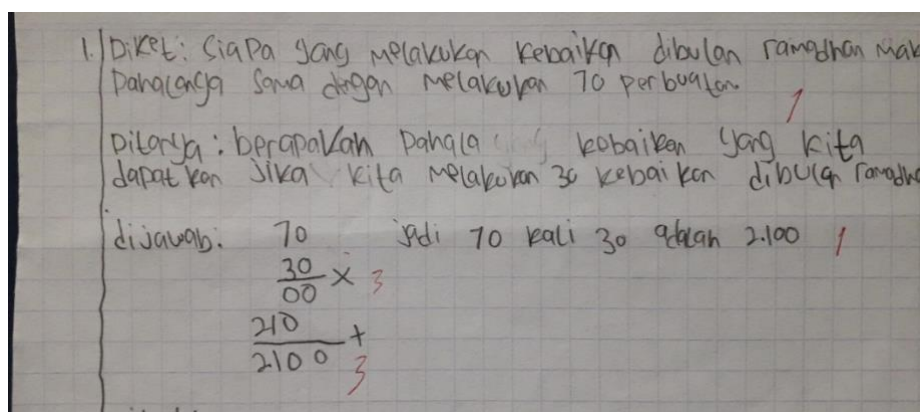 1. Diket: Siapa yang melakukan kebaikan dibulan ramadhan mak
Pahalanya sama dengan melakukan 70 perbuatan.
1
Ditanya: berapakah Pahala kebaikan yang kita
dapat kan jika kita melakukan 30 kebaikan dibulan ramadha
dijawab: 70 jadi 70 kali 30 adalah 2.100 1
30 × 3
00
210 +
2100
3